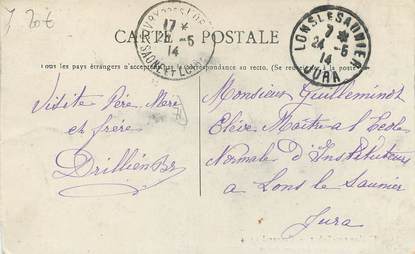 7 20€
CARTE POSTALE
17 *
-5
14
SAONE ET LOIRE
LONS LE SAUNIER
7 *
24 -5
14
JURA
Tous les pays étrangers n'acceptent la correspondance au recto. (Se
Visite Père, Mère
et frère
Monsieur Guilleminot
Elève Maître à l'Ecole
Normale d'Instituteurs
a Lons le Saunier
Jura